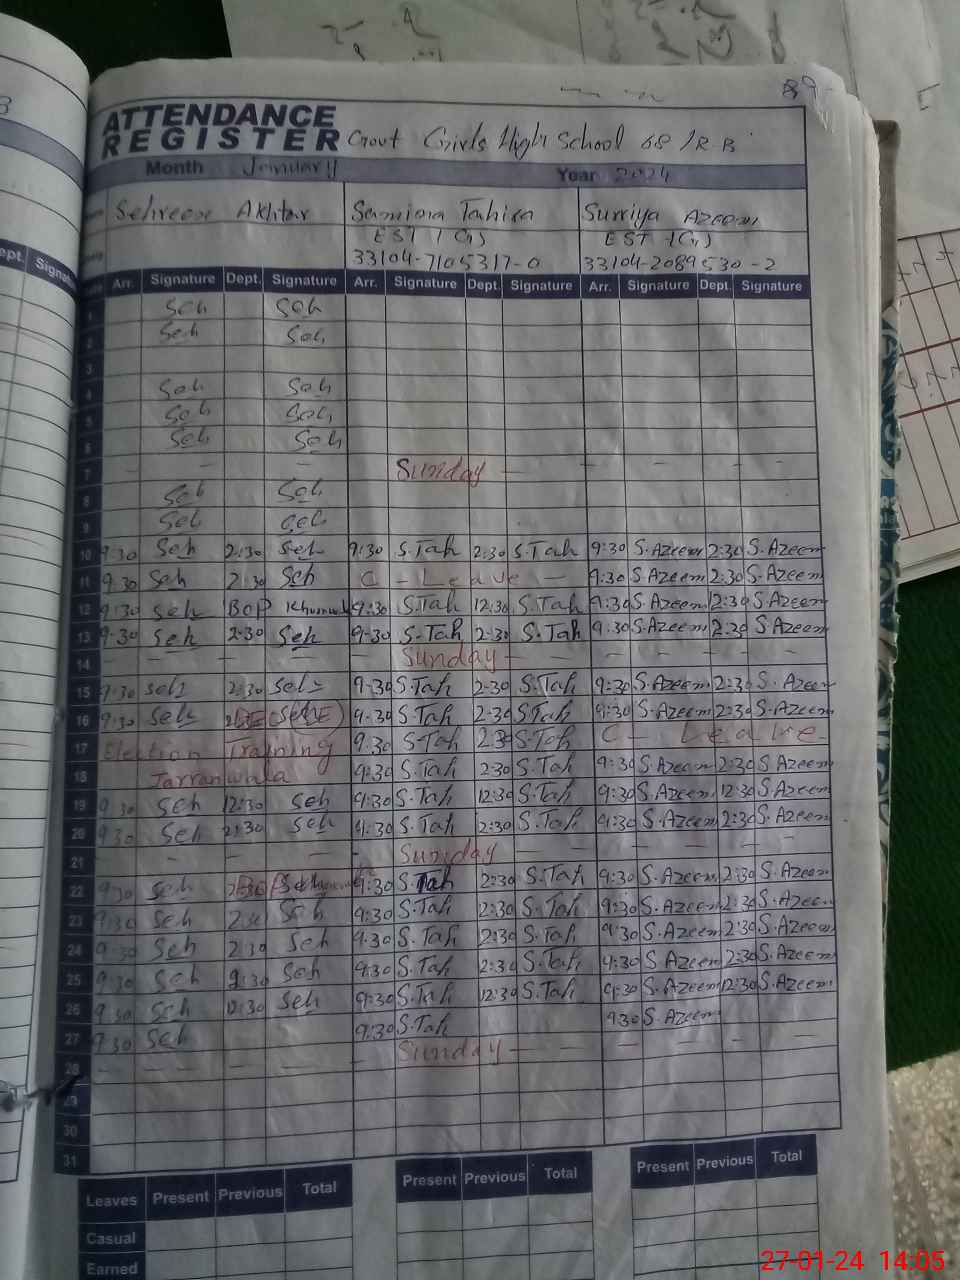 89
ATTENDANCE
REGISTER Govt Girls High School 68/R-B
Month January Year 2024
Sehreen Akhtar Samiora Tahira Surriya Azeem
EST (G) EST (G)
33104-7105317-0 33104-2089530-2
Arr. Signature Dept. Signature Arr. Signature Dept. Signature Arr. Signature Dept. Signature
1 Seh Seh
2 Seh Seh
3
4 Seh Seh
5 Seh Seh
6 Seh Seh
7 - - - Sunday - - - - - -
8 Seh Seh
9 Seh Seh
10 9:30 Seh 2:30 Seh 9:30 S.Tah 2:30 S.Tah 9:30 S.Azeem 2:30 S.Azeem
11 9:30 Seh 2:30 Seh C - Leave - 9:30 S.Azeem 2:30 S.Azeem
12 9:30 Seh BOP 9:30 S.Tah 12:30 S.Tah 9:30 S.Azeem 12:30 S.Azeem
13 9-30 Seh 2-30 Seh 9-30 S.Tah 2-30 S.Tah 9:30 S.Azeem 2:30 S.Azeem
14 - - - - - Sunday - - - - - -
15 9:30 Seh 2:30 Seh 9-30 S.Tah 2-30 S.Tah 9:30 S.Azeem 2:30 S.Azeem
16 9:30 Seh 9-30 S.Tah 2-30 S.Tah 9:30 S.Azeem 2:30 S.Azeem
17 Election Training 9:30 S.Tah 2:30 S.Tah C - Leave -
18 Jarranwala 9:30 S.Tah 2:30 S.Tah 9:30 S.Azeem 2:30 S.Azeem
19 9:30 Seh 12:30 Seh 9:30 S.Tah 12:30 S.Tah 9:30 S.Azeem 12:30 S.Azeem
20 9:30 Seh 2:30 Seh 9:30 S.Tah 2:30 S.Tah 9:30 S.Azeem 2:30 S.Azeem
21 - - - - - Sunday - - - - - -
22 9:30 Seh 9:30 S.Tah 2:30 S.Tah 9:30 S.Azeem 2:30 S.Azeem
23 9:30 Seh 2:30 Seh 9:30 S.Tah 2:30 S.Tah 9:30 S.Azeem 2:30 S.Azeem
24 9:30 Seh 2:30 Seh 9:30 S.Tah 2:30 S.Tah 9:30 S.Azeem 2:30 S.Azeem
25 9:30 Seh 2:30 Seh 9:30 S.Tah 2:30 S.Tah 9:30 S.Azeem 2:30 S.Azeem
26 9:30 Seh 12:30 Seh 9:30 S.Tah 12:30 S.Tah 9:30 S.Azeem 12:30 S.Azeem
27 9:30 Seh 9:30 S.Tah 9:30 S.Azeem
28 - - - - - Sunday - - - - - -
29
30
31
Leaves Present Previous Total Present Previous Total Present Previous Total
Casual
Earned
27-01-24 14:05